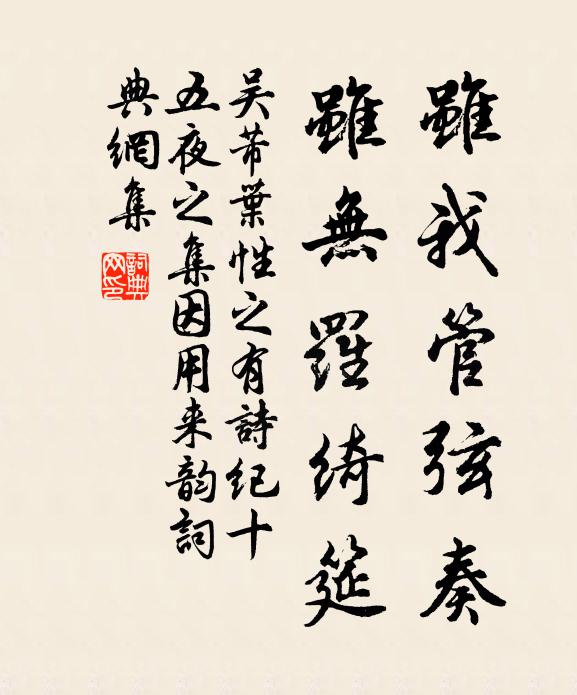 雖我管弦奏
雖無羅綺筵
吴芾葉性之有詩紀十
五夜之集因用来韵詞
典網集
詞典網印